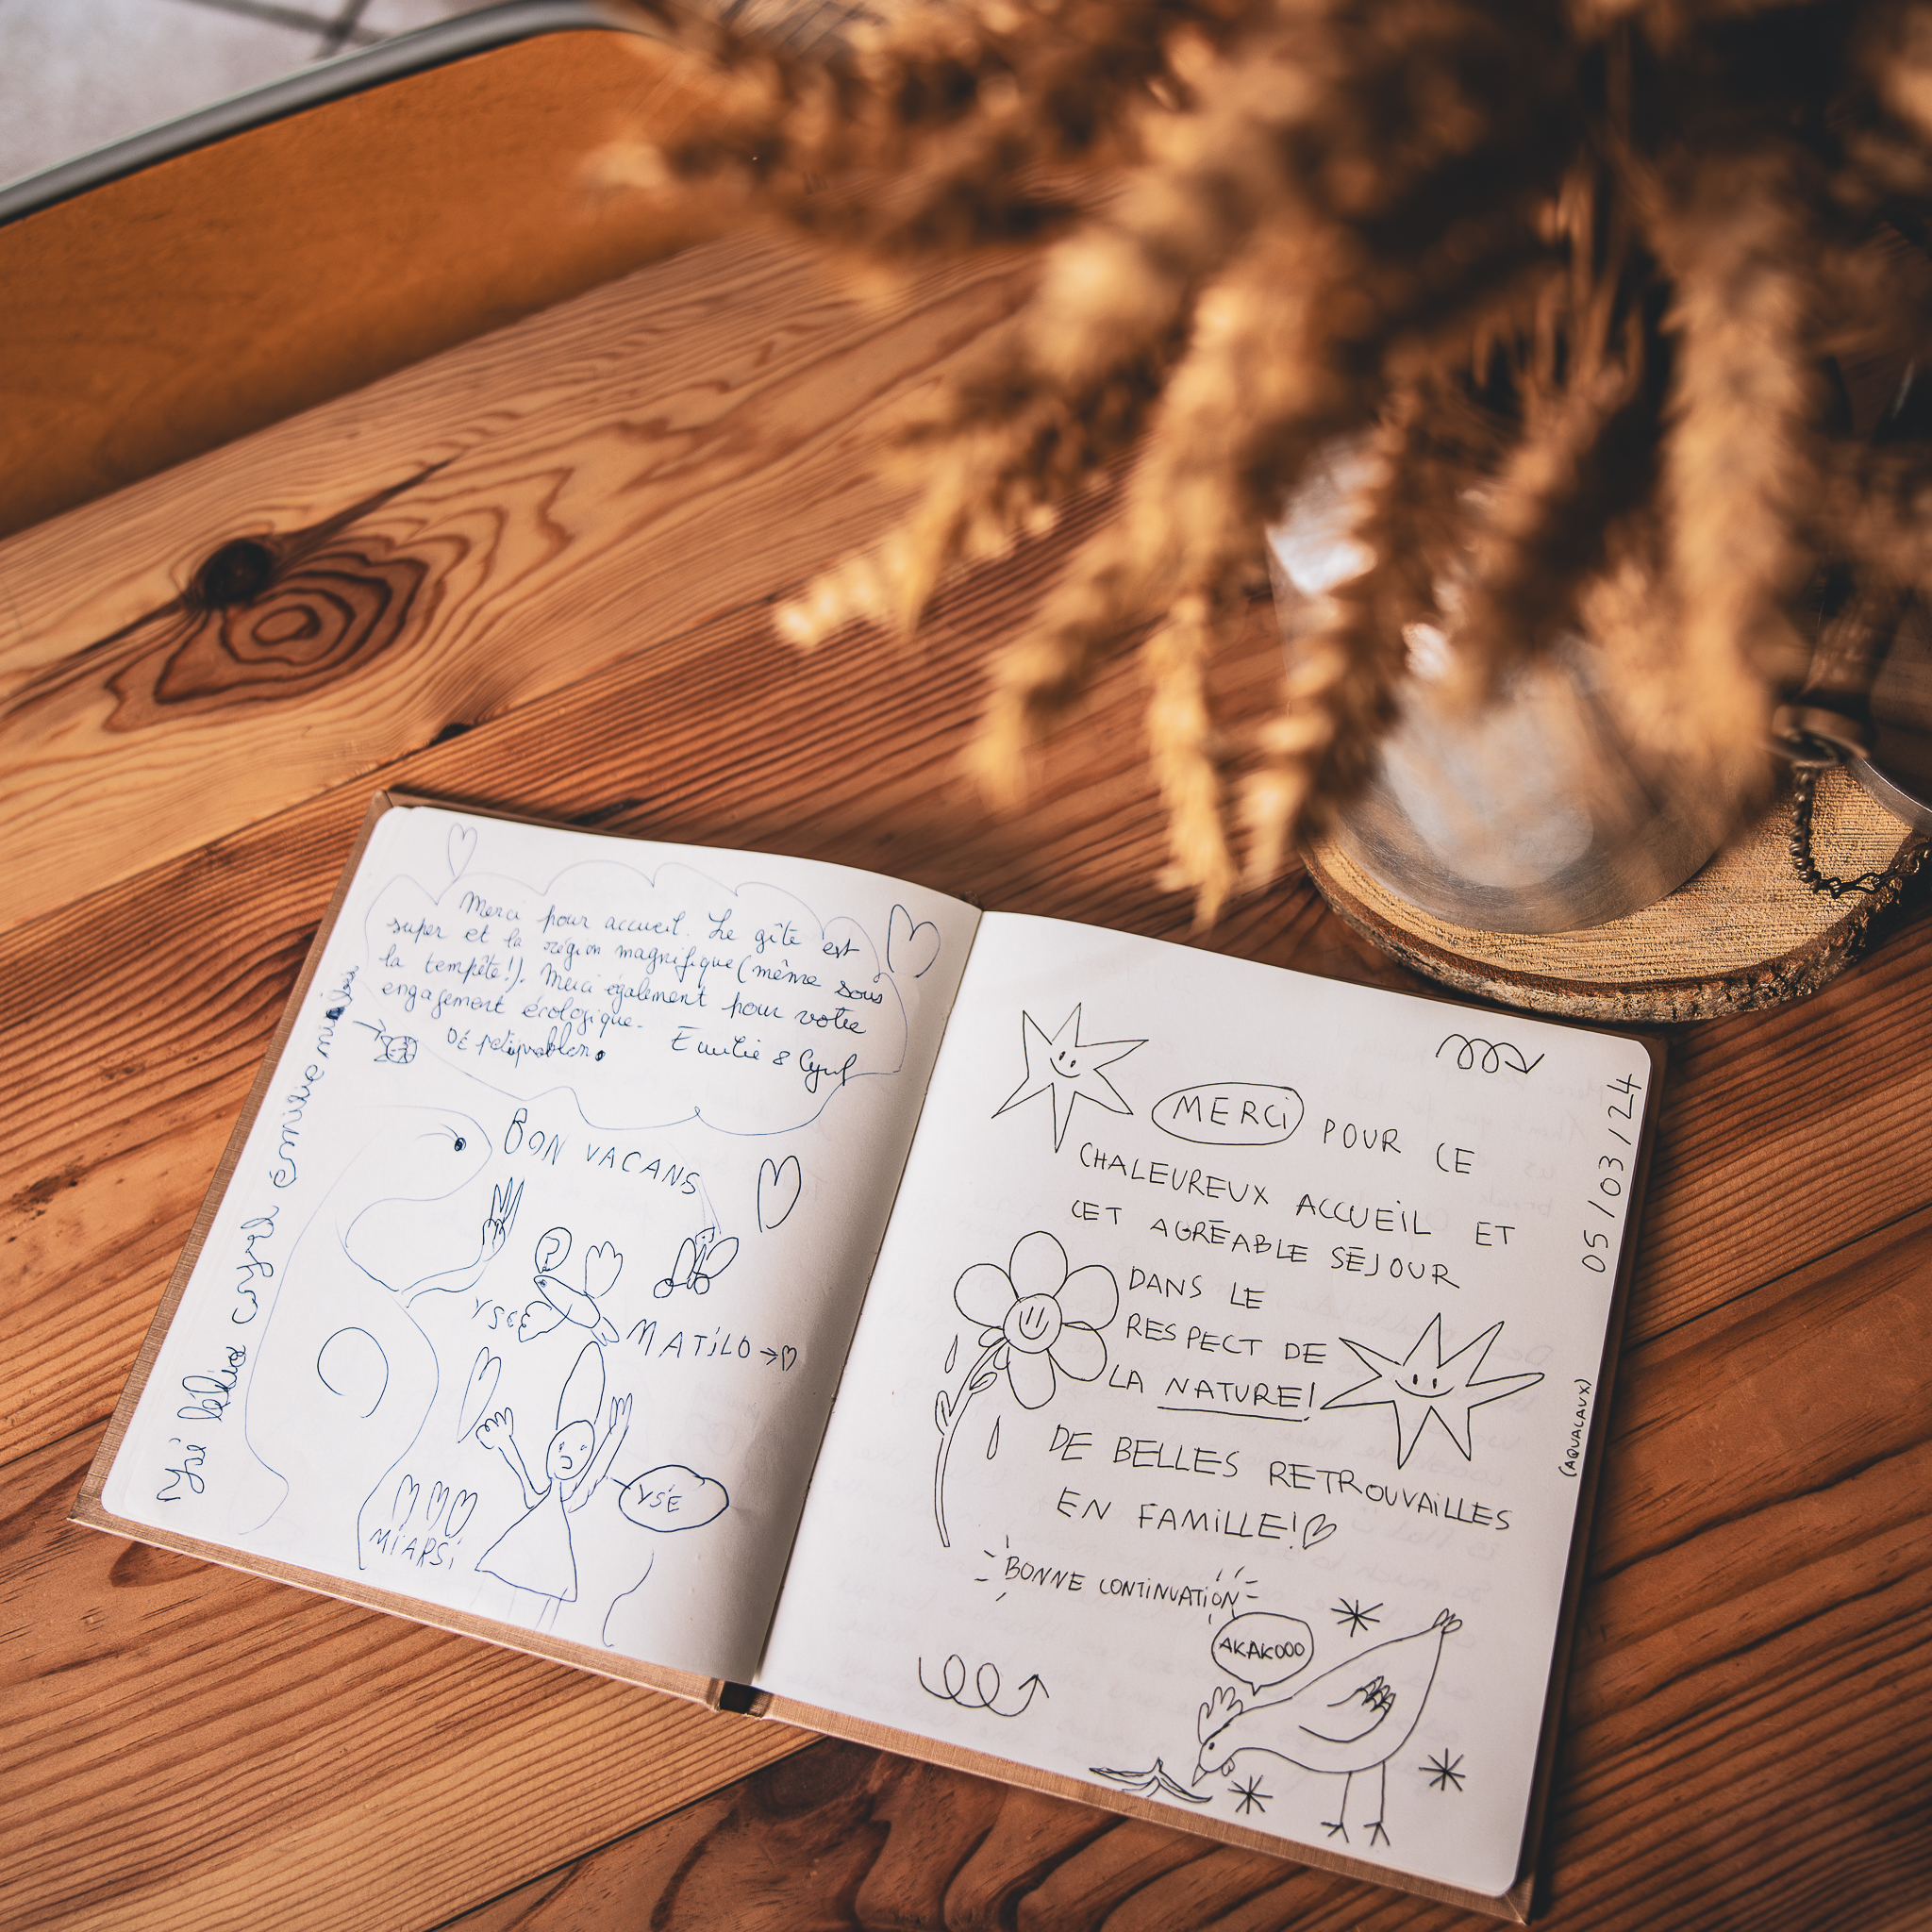 Merci pour accueil. Le gîte est
super et la région magnifique (même sous
la tempête!). Merci également pour votre
engagement écologique.
Emilie & Cyril
BON VACANS
YSÉ
MATiLO → ♡
YSÉ
MiARSi
Ysé cyril émilie
MERCi POUR CE
CHALEUREUX ACCUEiL ET
CET AGRÉABLE SÉJOUR
DANS LE
RESPECT DE
LA NATURE!
DE BELLES RETROUVAiLLES
EN FAMiLLE! ♡
BONNE CONTiNUATiON
AKAKOOO
05/03/24
(AQUALAUX)